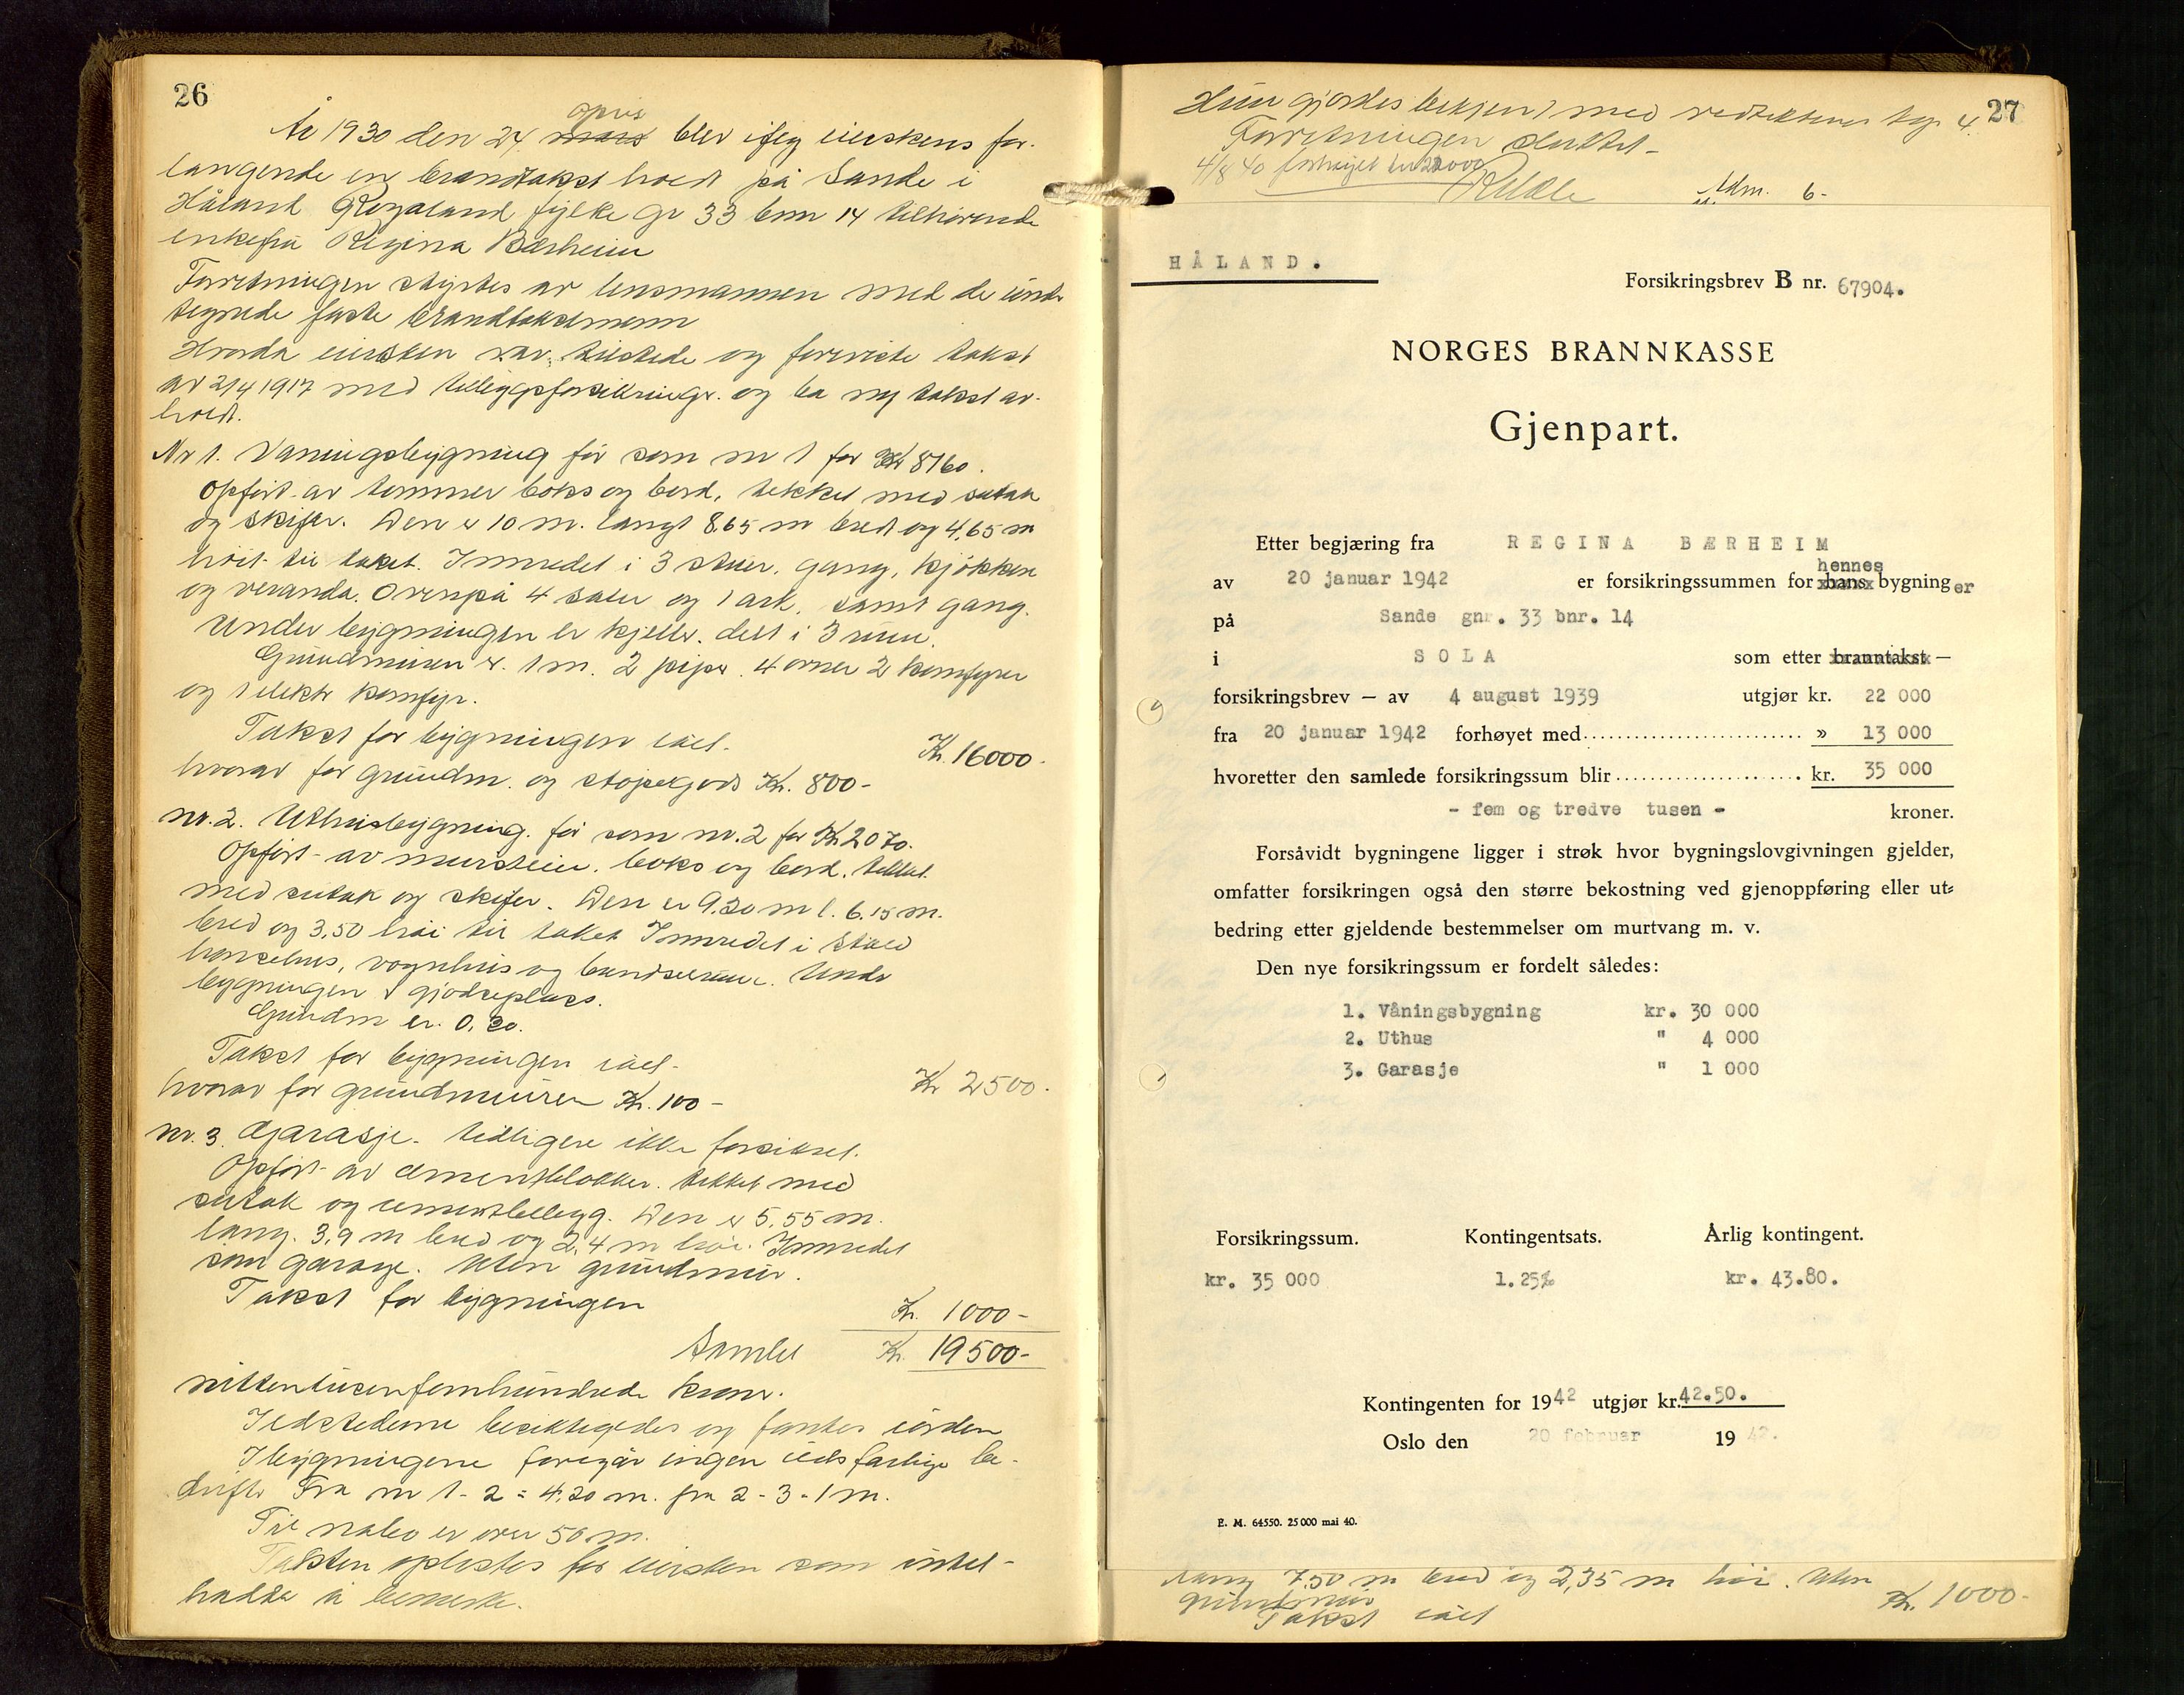 26
april
År 1930 den 24 mars blev iflg eierskens for-
langende en brandtakst holdt på Sande i
Håland Rogaland fylke gr 33 bnr 14 tilhørende
enkefru Regina Bærheim
Forretningen styrtes av lensmannen med de under
tegnede faste brandtakstmenn
Hvorda eiersken var tilstede og foreviste takst
av 2/4 1917 med tilleggsforsikringer og ba ny takst av-
holdt.
Nr 1. Vaningsbygning før som nr 1 for Kr 8760.
Opført av tømmer boks og bord, tekket med sutak
og skifer. Den er 10 m. langt 8,65 m bred og 4,65 m
høit til taket. Innredet i 3 stuer, gang, kjøkken
og veranda. Ovenpå 4 saler og 1 ark. samt gang.
Under bygningen er kjeller. delt i 3 rum.
Grundmuren er 1 m. 2 piper. 4 ovner 2 komfyrer
og 1 elektr komfyr.
Takst for bygningen ialt-
Kr. 16000-
hvorav for grundm. og støpegods Kr. 800-
nr. 2. Uthusbygning. før som nr. 2 for Kr 2070.
Opført av murstein. boks og bord. tekket
med sutak og skifer. Den er 9.20 m l. 6.15 m.
bred og 3,50 høi til taket Innredet i stald
hønsehus, vognhus og Under
bygningen er gjødseplass.
Grundm er. 0.20.
Takst for bygningen ialt-
Kr 2500.
hvorav for grundmuren Kr. 100-
nr. 3. Garasje. tidligere ikke forsikret.
Opført av cementblokker. tekket med
sutak og cementbelegg. Den er 5,55 m.
lang. 3,9 m bred og 2,4 m høi. Innredet
som garage. Uten grundmur.
Takst for bygningen
Kr. 1000-
Samlet Kr. 19500-
nittentusenfemhundrede kroner.
Ildstederne besiktigedes og fantes iorden
I bygningene foregår ingen ildsfarlige be-
drifter Fra nr 1-2 = 4.20 m. fra 2-3-1 m.
Til nabo er over 50 m.
Taksten oplestes for eiersken som intet-
hadde å bemerke.
27
Hun gjordes bekjent med vedtektenes kap 4.
Forretningen sluttet-
4/8 40 forhøiet til 22000
Adm. 6-
HÅLAND.
Forsikringsbrev B nr. 67904.
NORGES BRANNKASSE
Gjenpart.
Etter begjæring fra REGINA BÆRHEIM
hennes
av 20 januar 1942 er forsikringssummen for hans bygninger
på Sande gnr. 33 bnr. 14
i SOLA som etter branntakst —
forsikringsbrev — av 4 august 1939 utgjør kr. 22 000
fra 20 januar 1942 forhøyet med.......................... » 13 000
hvoretter den samlede forsikringssum blir...................... kr. 35 000
- fem og tredve tusen - kroner.
Forsåvidt bygningene ligger i strøk hvor bygningslovgivningen gjelder,
omfatter forsikringen også den større bekostning ved gjenoppføring eller ut-
bedring etter gjeldende bestemmelser om murtvang m. v.
Den nye forsikringssum er fordelt således:
1. Våningsbygning kr. 30 000
2. Uthus " 4 000
3. Garasje " 1 000
Forsikringssum. Kontingentsats. Årlig kontingent.
kr. 35 000 1.25‰ kr. 43.80.
Kontingenten for 1942 utgjør kr. 42.50.
Oslo den 20 februar 1942.
E. M. 64550. 25 000 mai 40.
lang 7,50 m bred og 2,35 m høi. Uten
grundmur
Takst ialt
Kr. 1000-